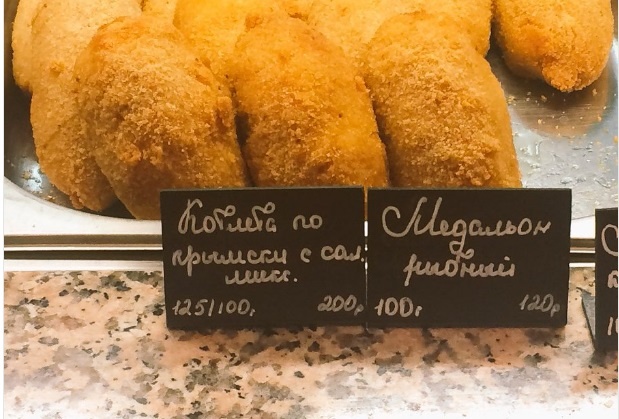 Котлета по
крымски с сал.
микс.
125/100г 200р
Медальон
рыбный
100г 120р